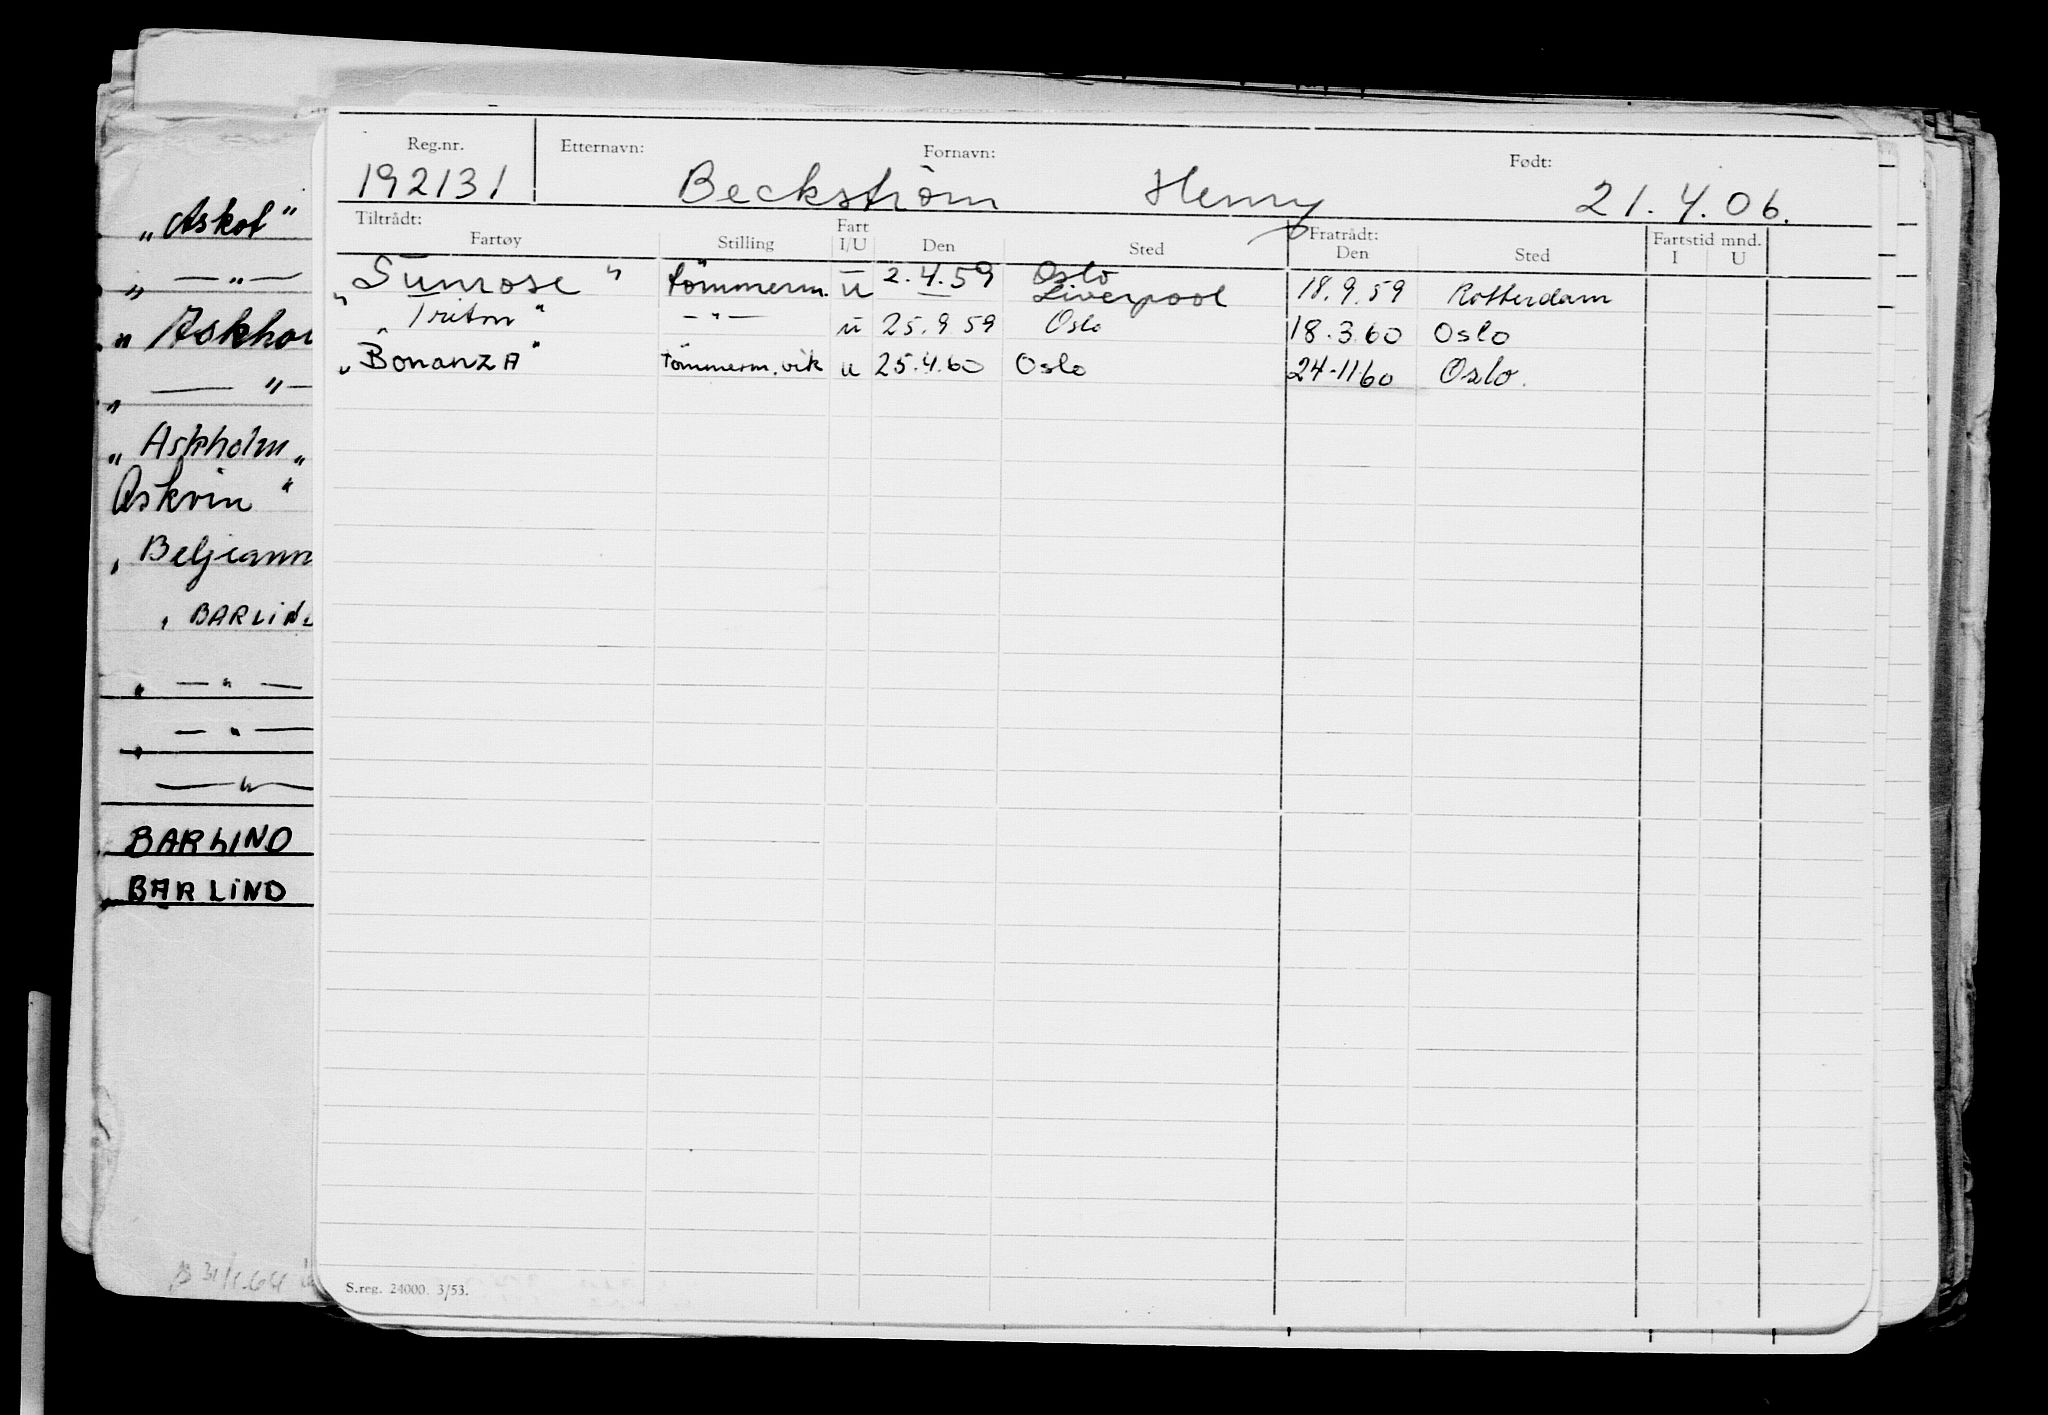 Reg.nr. Etternavn: Fornavn: Født:
192131 Beckström Henry 21.4.06.
Tiltrådt: Fratrådt:
Fartøy Stilling Fart I/U Den Sted Den Sted Fartstid mnd. I U
"Sunrose" tömmerm. u 2.4.59 Oslo Liverpool 18.9.59 Rotterdam
"Triton" —"— u 25.9.59 Oslo 18.3.60 Oslo
"BonanzA" tömmerm.vik u 25.4.60 Oslo 24-11 60 Oslo.
S.reg. 24000. 3/53.
"Askot"
" —"—
" Askho
" —"—
"Askholm"
Askvin"
"Beljeann
"BARLIN
" —"—
" —"—
—"—
BARLIND
BARLIND